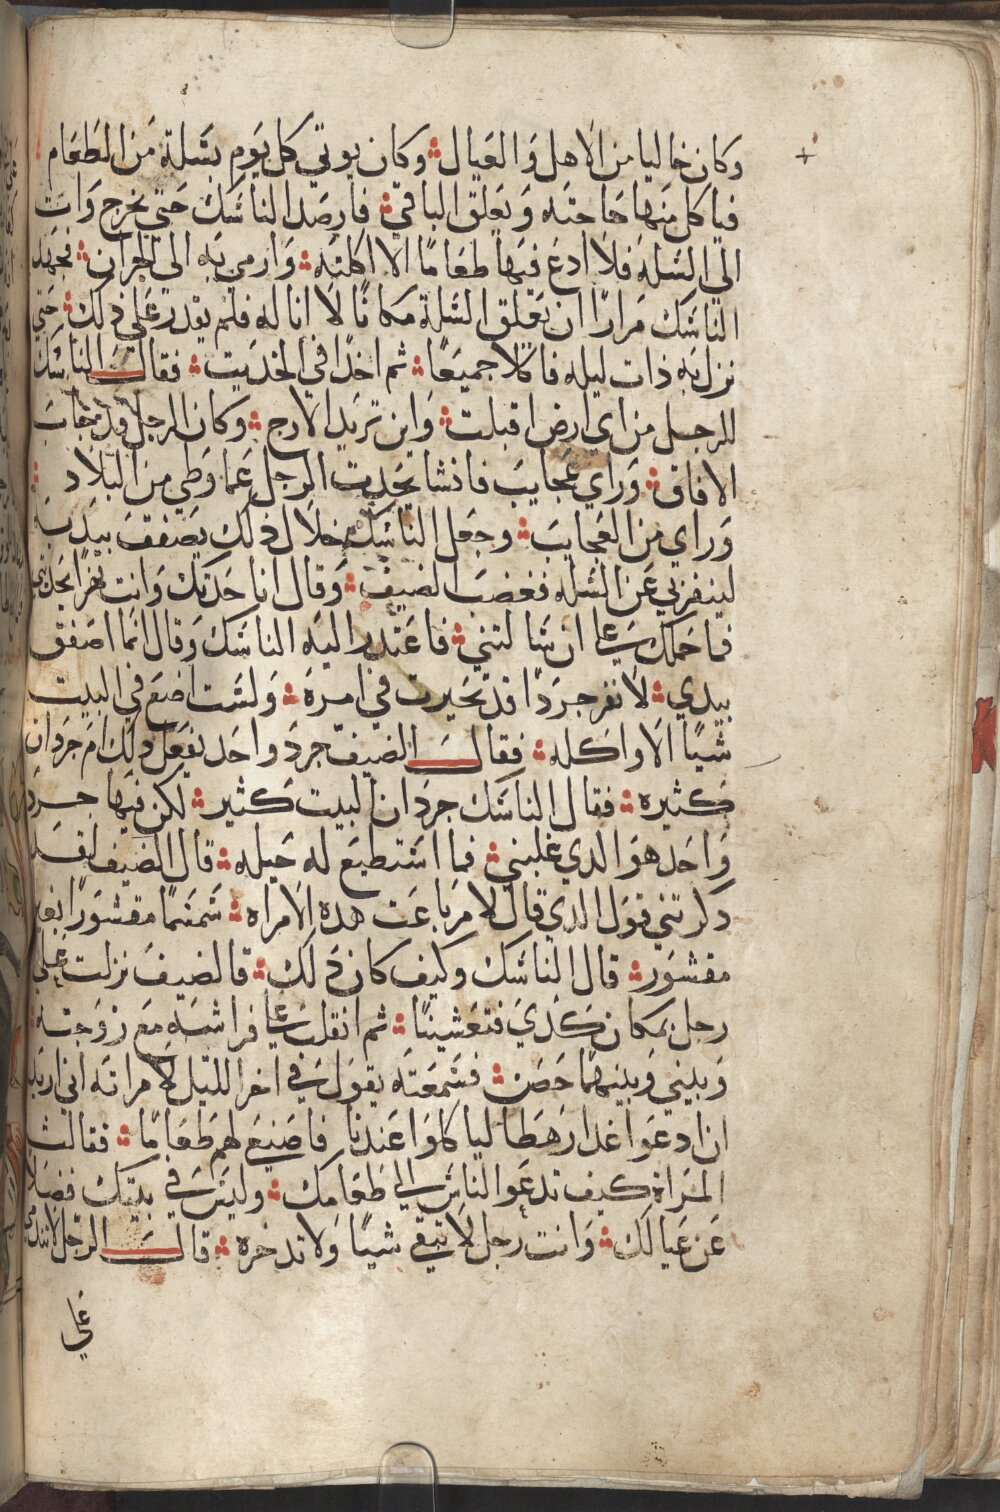 وكان خاليا من الاهل والعيال ؞ وكان يوتي كل يوم بسلة من الطعام
فياكل منها حاجته ويعلق الباقي ؞ فارصد الناسك حتي يخرج واتت
الي السله فلا ادع فيها طعاما الا اكلته ؞ وارمي به الي الجردان ؞ فجهد
الناسك مرارًا ان يعلق السلة مكانًا لا اناله فلم يقدر علي ذلك ؞ حتي
نزل به ذات ليله فاكلا جميعًا ؞ ثم اخذا في الحديث ؞ فقال الناسك
للرجل من اي ارض اقبلت ؞ واين تريد الارج ؞ وكان الرجل قد جاب
الافاق ؞ وراي عجايب فانشا يحدث الرجل عما وطي من البلاد ؞
وراي من العجايب ؞ وجعل الناسك خلال ذلك يصفق بيديه
لينفرني عن السله فغضب الضيف ؞ وقال انا احدثك وانت
فما حملك علي ان سالتني ؞ فاعتدر اليه الناسك وقال انما اصفق
بيدي ؞ لانفر جردًا قد تحيرت في امره ؞ ولست اضع في البيت
شيًا الا واكله ؞ فقال الضيف جرد واحد يفعل ذلك ام جردان
كثيره ؞ فقال الناسك جردان البيت كثير ؞ لكن فيها جرد
واحد هو الدي غلبني ؞ فما استطيع له حيله ؞ قال الضيف لقد
دكرتني قول الدي قال لامر باعت هده الامراه ؞ سمسمًا مقشورًا بغير
مقشور ؞ قال الناسك وكيف كان ذلك ؞ قالضيف نزلت علي
رجل بمكان كدي فتعشينا ؞ ثم انقلب علي فراشه مع زوجته ؞
وبيني وبينهما حصن ؞ فسمعته يقول في اخر الليل لامراته اني اريد
ان ادعوا غدا رهطا لياكلوا عندنا فاصنعي لهم طعامًا ؞ فقالت
المراة كيف تدعوا الناس الي طعامك ؞ وليس في بيتك فضلا
عن عيالك ؞ وانت رجل لا تبقي شيًا ولا تدخره ؞ قال الرجل لا تندمي
علي